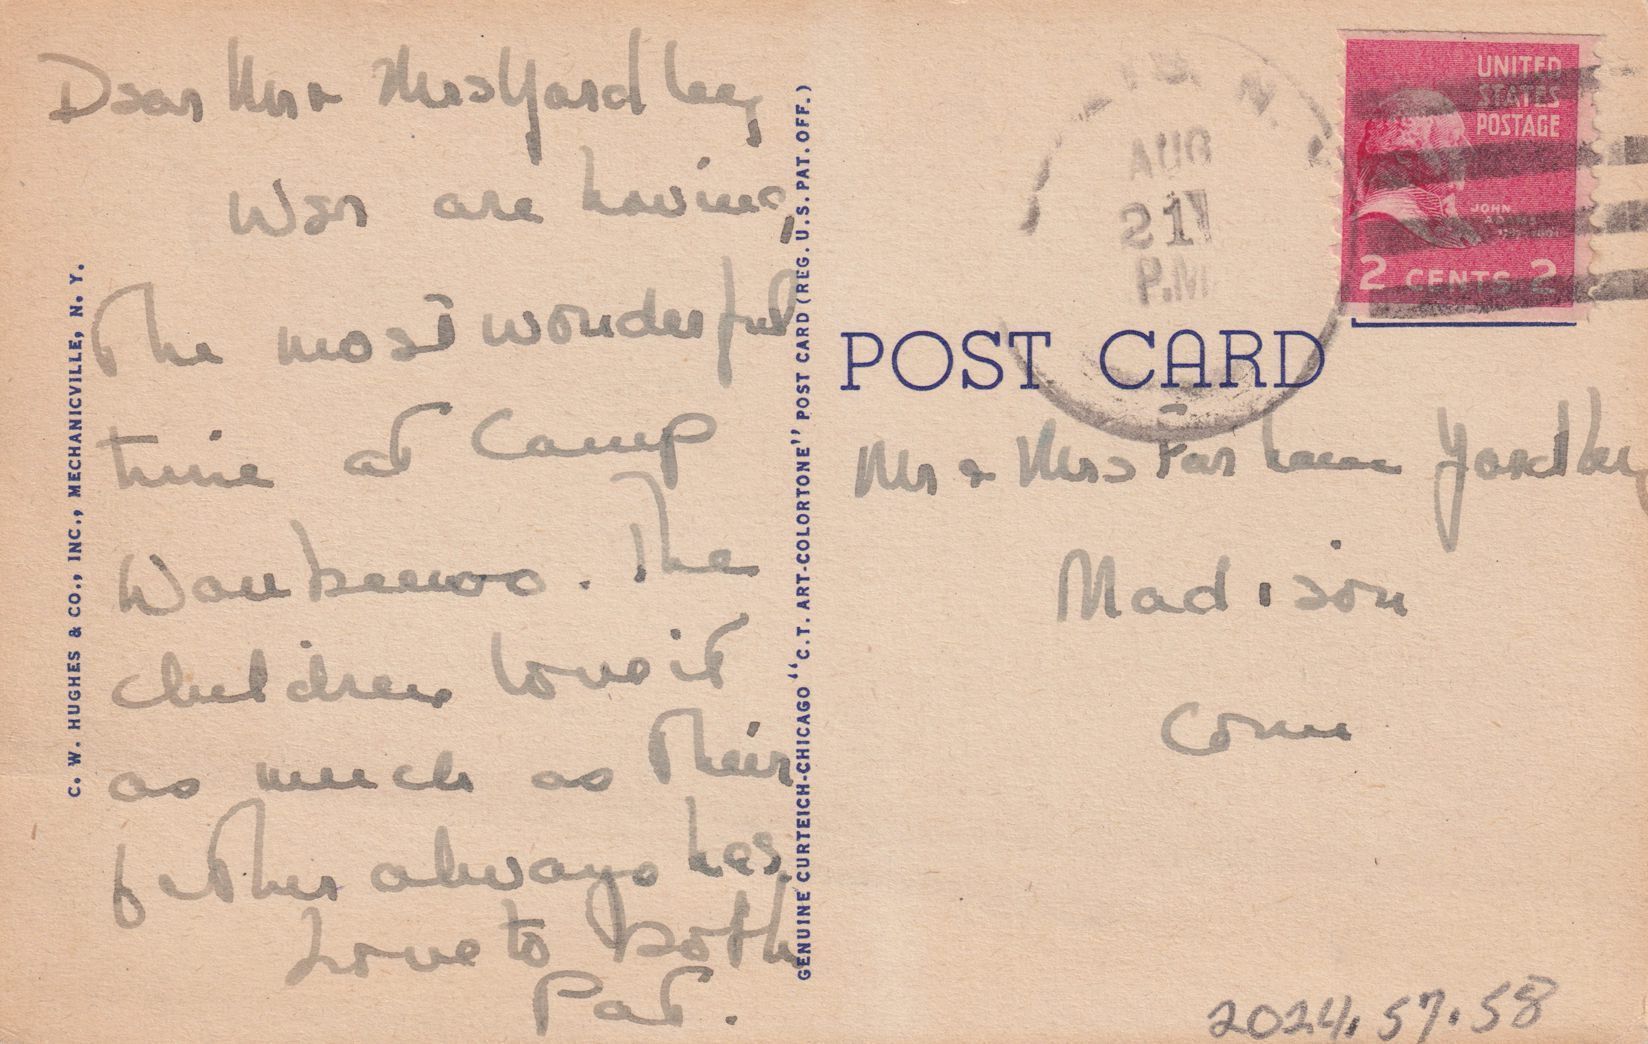 Dear Mr & Mrs Yardley,
We are having
the most wonderful
time at Camp
Waubeewo. The
children love it
as much as their
father always has.
Love to both
Pat.
C. W. HUGHES & CO., INC., MECHANICVILLE, N. Y.
GENUINE CURTEICH-CHICAGO "C.T. ART-COLORTONE" POST CARD (REG. U.S. PAT. OFF.)
AUG
21
P.M
UNITED
STATES
POSTAGE
JOHN
2 CENTS 2
POST CARD
Mr & Mrs Farnham Yardley
Madison
Conn
2024.57.58